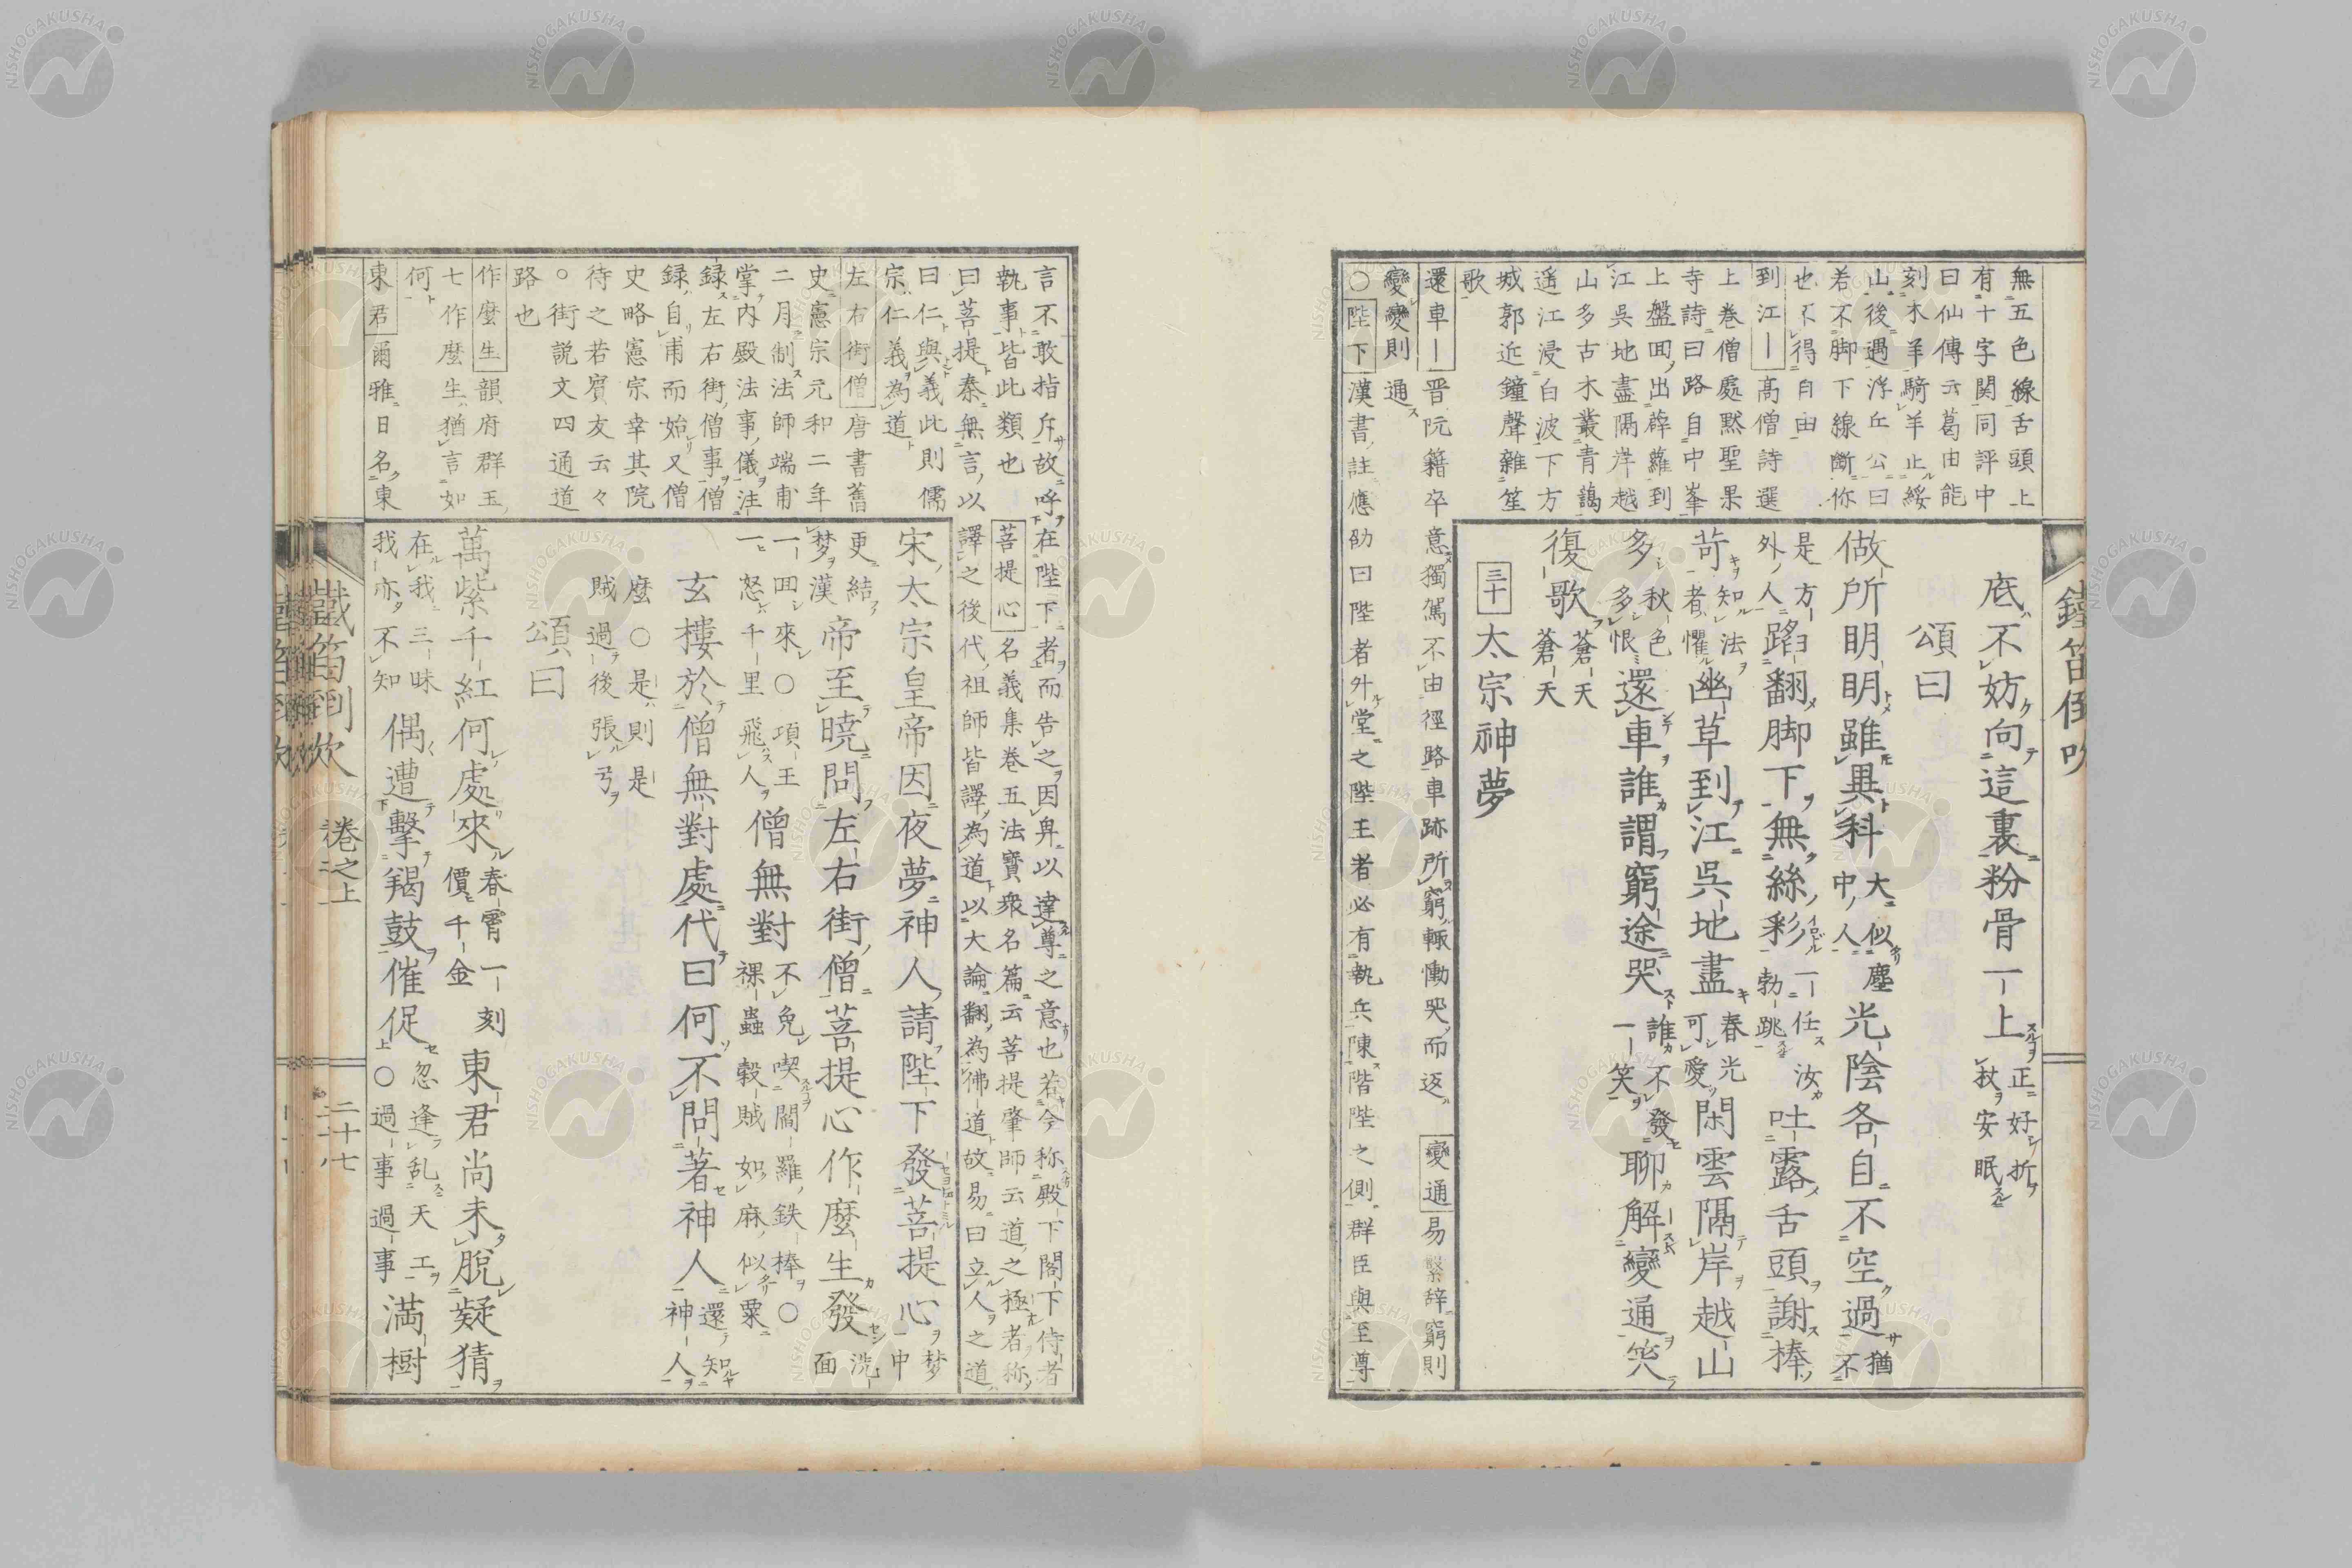 鐵笛倒吹
無五色線舌頭上
有十字関同評中
曰仙傳云葛由能
刻木羊騎羊止綏
山後遇浮丘公曰
若不脚下線斷你
也不得自由
到江｜高僧詩選
上巻僧處黙聖果
寺詩曰路自中峯
上盤囬出薜蘿到
江吳地盡隔岸越
山多古木叢青靄
遥江浸白波下方
城郭近鐘聲雜笙
歌
底不妨向這裏粉骨一上 正好折
拄杖安眠
頌曰
做所明明雖異科 大似塵
中人 光陰各自不空過 猶不
是方
外人 蹈翻脚下無絲彩 一任汝
勃跳 吐露舌頭謝棒
苛 知法
者懼 幽草到江吳地盡 春光
可愛 閑雲隔岸越山
多 秋色
多恨 還車誰謂窮途哭 誰不發
一笑 聊解變通笑
復歌 蒼天
蒼天
三十 太宗神夢
還車｜晋阮籍卒意獨駕不由徑路車跡所窮輙慟哭而返 變通易繫辞窮則
變變則通
○陛下漢書註應劭曰陛者外堂之陛王者必有執兵陳階陛之側群臣與至尊
言不敢指斥故呼在陛下者而告之因卑以達尊之意也若今称殿下閣下侍者
執事皆此類也 菩提心名義集巻五法寳衆名篇云菩提肇師云道之極者称
曰菩提秦無言以譯之後代祖師皆譯為道以大論翻為佛道故易曰立人之道
曰仁與義此則儒
宗仁義為道
左右街僧唐書舊
史憲宗元和二年
二月制法師端甫
掌内殿法事儀注
録左右街僧事僧
録自甫而始又僧
史略憲宗幸其院
待之若賓友云々
○街説文四通道
路也
作麼生韻府群玉
七作麼生猶言如
何
東君爾雅日名東
宋太宗皇帝因夜夢神人請陛下發菩提心 梦中
更結
梦漢 帝至曉問左右街僧菩提心作麼生發 洗面
一囬來○項王
一怒千里飛人 僧無對 不免喫閻羅鉄棒○
裸蟲毂賊如麻似粟
玄樓於僧無對處代曰何不問著神人 還知
神人
麼○是則是
賊過後張弓
頌曰
萬紫千紅何處來 春宵一刻
價千金 東君尚未脫疑猜
在我三昧
我亦不知 偶遭擊羯鼓催促 忽逢乱天工
○過事過事 満樹
鐵笛倒吹 巻之上 二十七